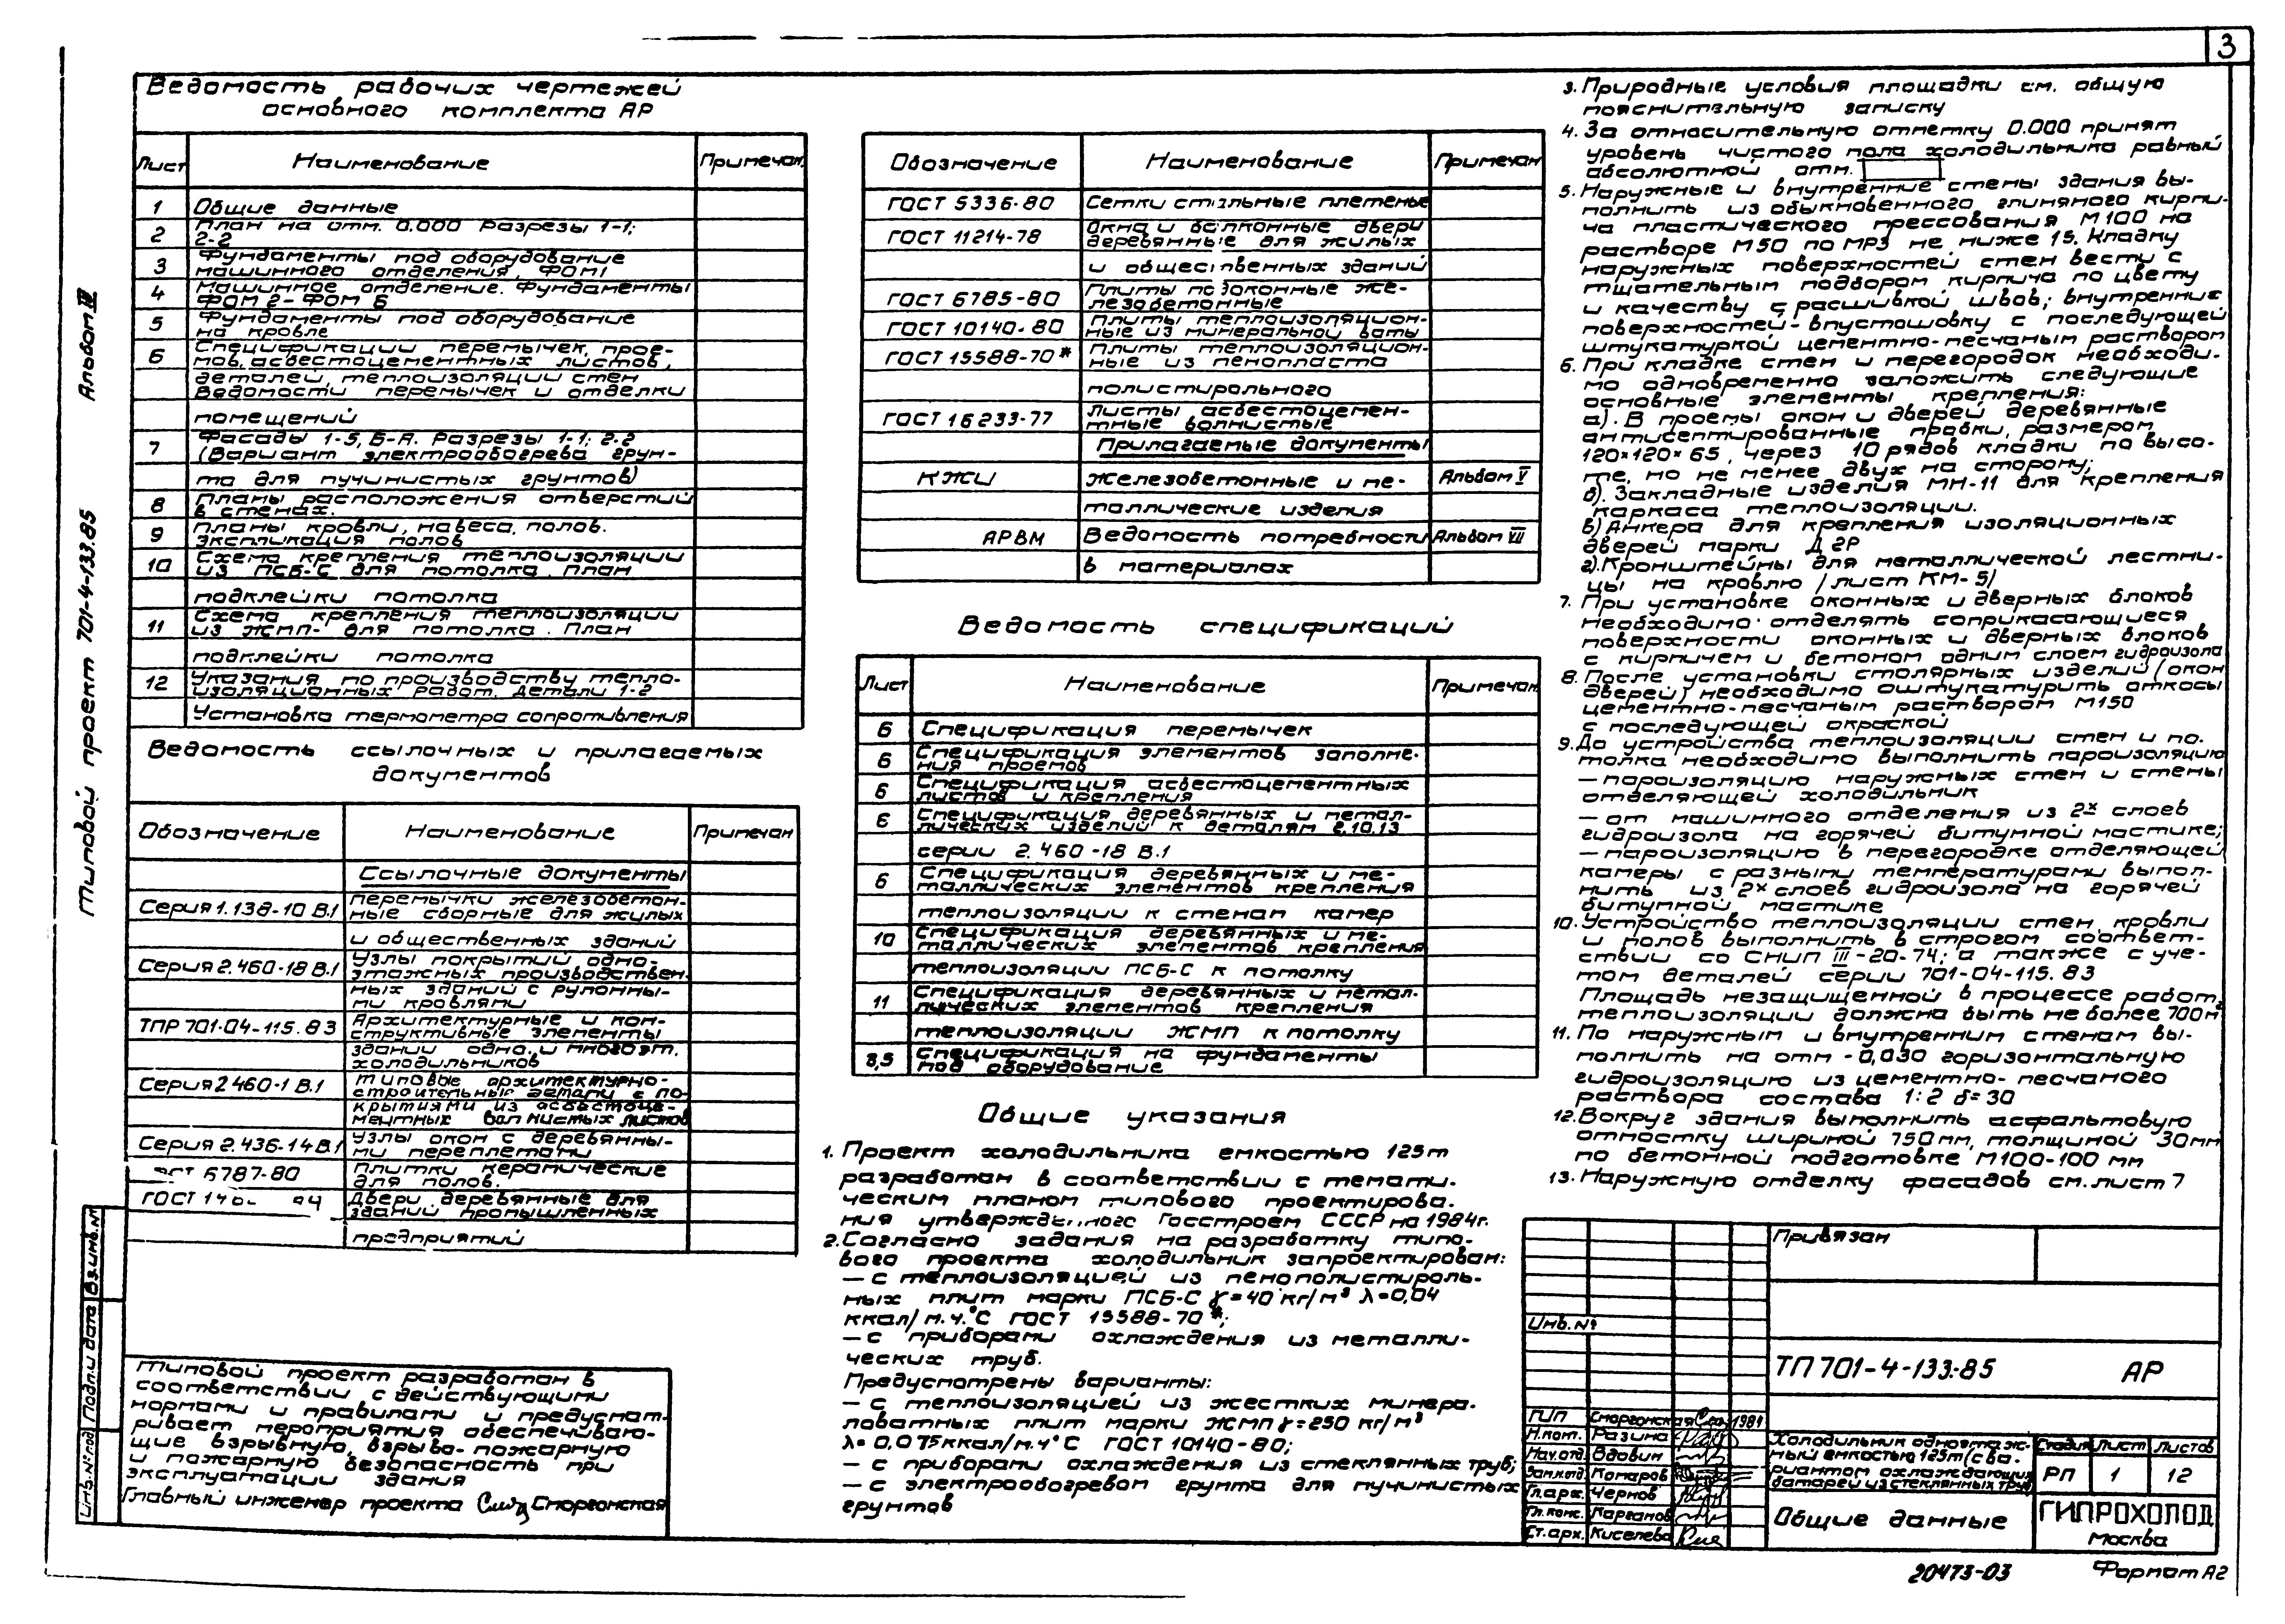 3
Альбом IV
Типовой проект 701-4-133.85
Ведомость рабочих чертежей
основного комплекта АР
Лист Наименование Примечан.
1 Общие данные
2 План на отм. 0.000 Разрезы 1-1;
2-2
3 Фундаменты под оборудование
машинного отделения, ФОМ1
4 Машинное отделение. Фундаменты
ФОМ 2 - ФОМ 6
5 Фундаменты под оборудование
на кровле
6 Спецификации перемычек, прое-
мов, асбестоцементных листов,
деталей, теплоизоляции стен
Ведомости перемычек и отделки
помещений
7 Фасады 1-5, Б-А. Разрезы 1-1; 2-2
(Вариант электрообогрева грун-
та для пучинистых грунтов)
8 Планы расположения отверстий
в стенах.
9 Планы кровли, навеса, полов.
Экспликация полов
10 Схема крепления теплоизоляции
из ПСБ-С для потолка. План
подклейки потолка
11 Схема крепления теплоизоляции
из ЖМП- для потолка. План
подклейки потолка
12 Указания по производству тепло-
изоляционных работ. Детали 1-2
Установка термометра сопротивления
Ведомость ссылочных и прилагаемых
документов
Обозначение Наименование Примечан
Ссылочные документы
Серия 1.138-10 В.1 Перемычки железобетон-
ные сборные для жилых
и общественных зданий
Серия 2.460-18 В.1 Узлы покрытий одно-
этажных производствен-
ных зданий с рулонны-
ми кровлями
ТПР 701-04-115.83 Архитектурные и кон-
структивные элементы
зданий одно. и многоэт.
холодильников
Серия 2.460-1 В.1 Типовые архитектурно-
строительные детали с по-
крытиями из асбестоце-
ментных волнистых листов
Серия 2.436-14 В.1 Узлы окон с деревянны-
ми переплетами
6787-80 Плитки керамические
для полов.
ГОСТ Двери деревянные для
зданий промышленных
предприятий
Типовой проект разработан в
соответствии с действующими
нормами и правилами и предусмат-
ривает мероприятия обеспечиваю-
щие взрывную, взрыво-пожарную
и пожарную безопасность при
эксплуатации здания
Главный инженер проекта Сморгонская
Инв.№ под Подп. и дата Вз.инв.№
Обозначение Наименование Примечан
ГОСТ 5336-80 Сетки стальные плетеные
ГОСТ 11214-78 Окна и балконные двери
деревянные для жилых
и общественных зданий
ГОСТ 6785-80 Плиты подоконные же-
лезобетонные
ГОСТ 10140-80 Плиты теплоизоляцион-
ные из минеральной ваты
ГОСТ 15588-70* Плиты теплоизоляцион-
ные из пенопласта
полистирольного
ГОСТ 16233-77 Листы асбестоцемен-
тные волнистые
Прилагаемые документы
КЖИ Железобетонные и ме- Альбом V
таллические изделия
АРВМ Ведомость потребности Альбом VII
в материалах
Ведомость спецификаций
Лист Наименование Примечан
6 Спецификация перемычек
6 Спецификация элементов заполне-
ния проемов
6 Спецификация асбестоцементных
листов и крепления
6 Спецификация деревянных и метал-
лических изделий к деталям 2,10,13
серии 2.460-18 В.1
6 Спецификация деревянных и ме-
таллических элементов крепления
теплоизоляции к стенам камер
10 Спецификация деревянных и ме-
таллических элементов крепления
теплоизоляции ПСБ-С к потолку
11 Спецификация деревянных и метал-
лических элементов крепления
теплоизоляции ЖМП к потолку
8,5 Спецификация на фундаменты
под оборудование
Общие указания
1. Проект холодильника емкостью 125т
разработан в соответствии с темати-
ческим планом типового проектирова-
ния утвержденного Госстроем СССР на 1984г.
2. Согласно задания на разработку типо-
вого проекта холодильник запроектирован:
— с теплоизоляцией из пенополистироль-
ных плит марки ПСБ-С γ=40 кг/м³ λ=0,04
ккал/м.ч.°С ГОСТ 15588-70*;
— с приборами охлаждения из металли-
ческих труб.
Предусмотрены варианты:
— с теплоизоляцией из жестких минера-
ловатных плит марки ЖМП γ=250 кг/м³
λ=0,075ккал/м.ч°С ГОСТ 10140-80;
— с приборами охлаждения из стеклянных труб;
— с электрообогревом грунта для пучинистых
грунтов
3. Природные условия площадки см. общую
пояснительную записку
4. За относительную отметку 0.000 принят
уровень чистого пола холодильника равный
абсолютной отм.
5. Наружные и внутренние стены здания вы-
полнить из обыкновенного глиняного кирпи-
ча пластического прессования М100 на
растворе М50 по МРЗ не ниже 15. Кладку
наружных поверхностей стен вести с
тщательным подбором кирпича по цвету
и качеству с расшивкой швов; внутренних
поверхностей-впустошовку с последующей
штукатуркой цементно-песчаным раствором
6. При кладке стен и перегородок необходи-
мо одновременно заложить следующие
основные элементы крепления:
а). В проемы окон и дверей деревянные
антисептированные пробки, размером
120×120×65, через 10 рядов кладки по высо-
те, но не менее двух на сторону;
б). Закладные изделия МН-11 для крепления
каркаса теплоизоляции.
в) Анкера для крепления изоляционных
дверей марки Д2Р
г). Кронштейны для металлической лестни-
цы на кровлю /лист КМ-5/
7. При установке оконных и дверных блоков
необходимо отделять соприкасающиеся
поверхности оконных и дверных блоков
с кирпичем и бетоном одним слоем гидроизола
8. После установки столярных изделий (окон
дверей) необходимо оштукатурить откосы
цементно-песчаным раствором М150
с последующей окраской
9. До устройства теплоизоляции стен и по-
толка необходимо выполнить пароизоляцию
— пароизоляцию наружных стен и стены
отделяющей холодильник
— от машинного отделения из 2х слоев
гидроизола на горячей битумной мастике;
— пароизоляцию в перегородке отделяющей
камеры с разными температурами выпол-
нить из 2х слоев гидроизола на горячей
битумной мастике
10. Устройство теплоизоляции стен, кровли
и полов выполнить в строгом соответ-
ствии со СНиП III-20-74; а также с уче-
том деталей серии 701-04-115.83
Площадь незащищенной в процессе работ
теплоизоляции должна быть не более 700м²
11. По наружным и внутренним стенам вы-
полнить на отм -0,030 горизонтальную
гидроизоляцию из цементно-песчаного
раствора состава 1:2 δ=30
12. Вокруг здания выполнить асфальтовую
отмостку шириной 750мм, толщиной 30мм
по бетонной подготовке М100-100 мм
13. Наружную отделку фасадов см. лист 7
Привязан
Инв.№
ТП 701-4-133.85 АР
ГИП Сморгонская 1984
Н.конт. Разина
Нач.отд. Вдовин
Зам.отд. Комаров
Гл.арх. Чернов
Гл. конс. Карганов
Ст. арх. Киселева
Холодильник одноэтаж-
ный емкостью 125т(с ва-
риантом охлаждающих
батарей из стеклянных труб)
Стадия Лист Листов
РП 1 12
Общие данные
ГИПРОХОЛОД
Москва
20473-03 Формат А2